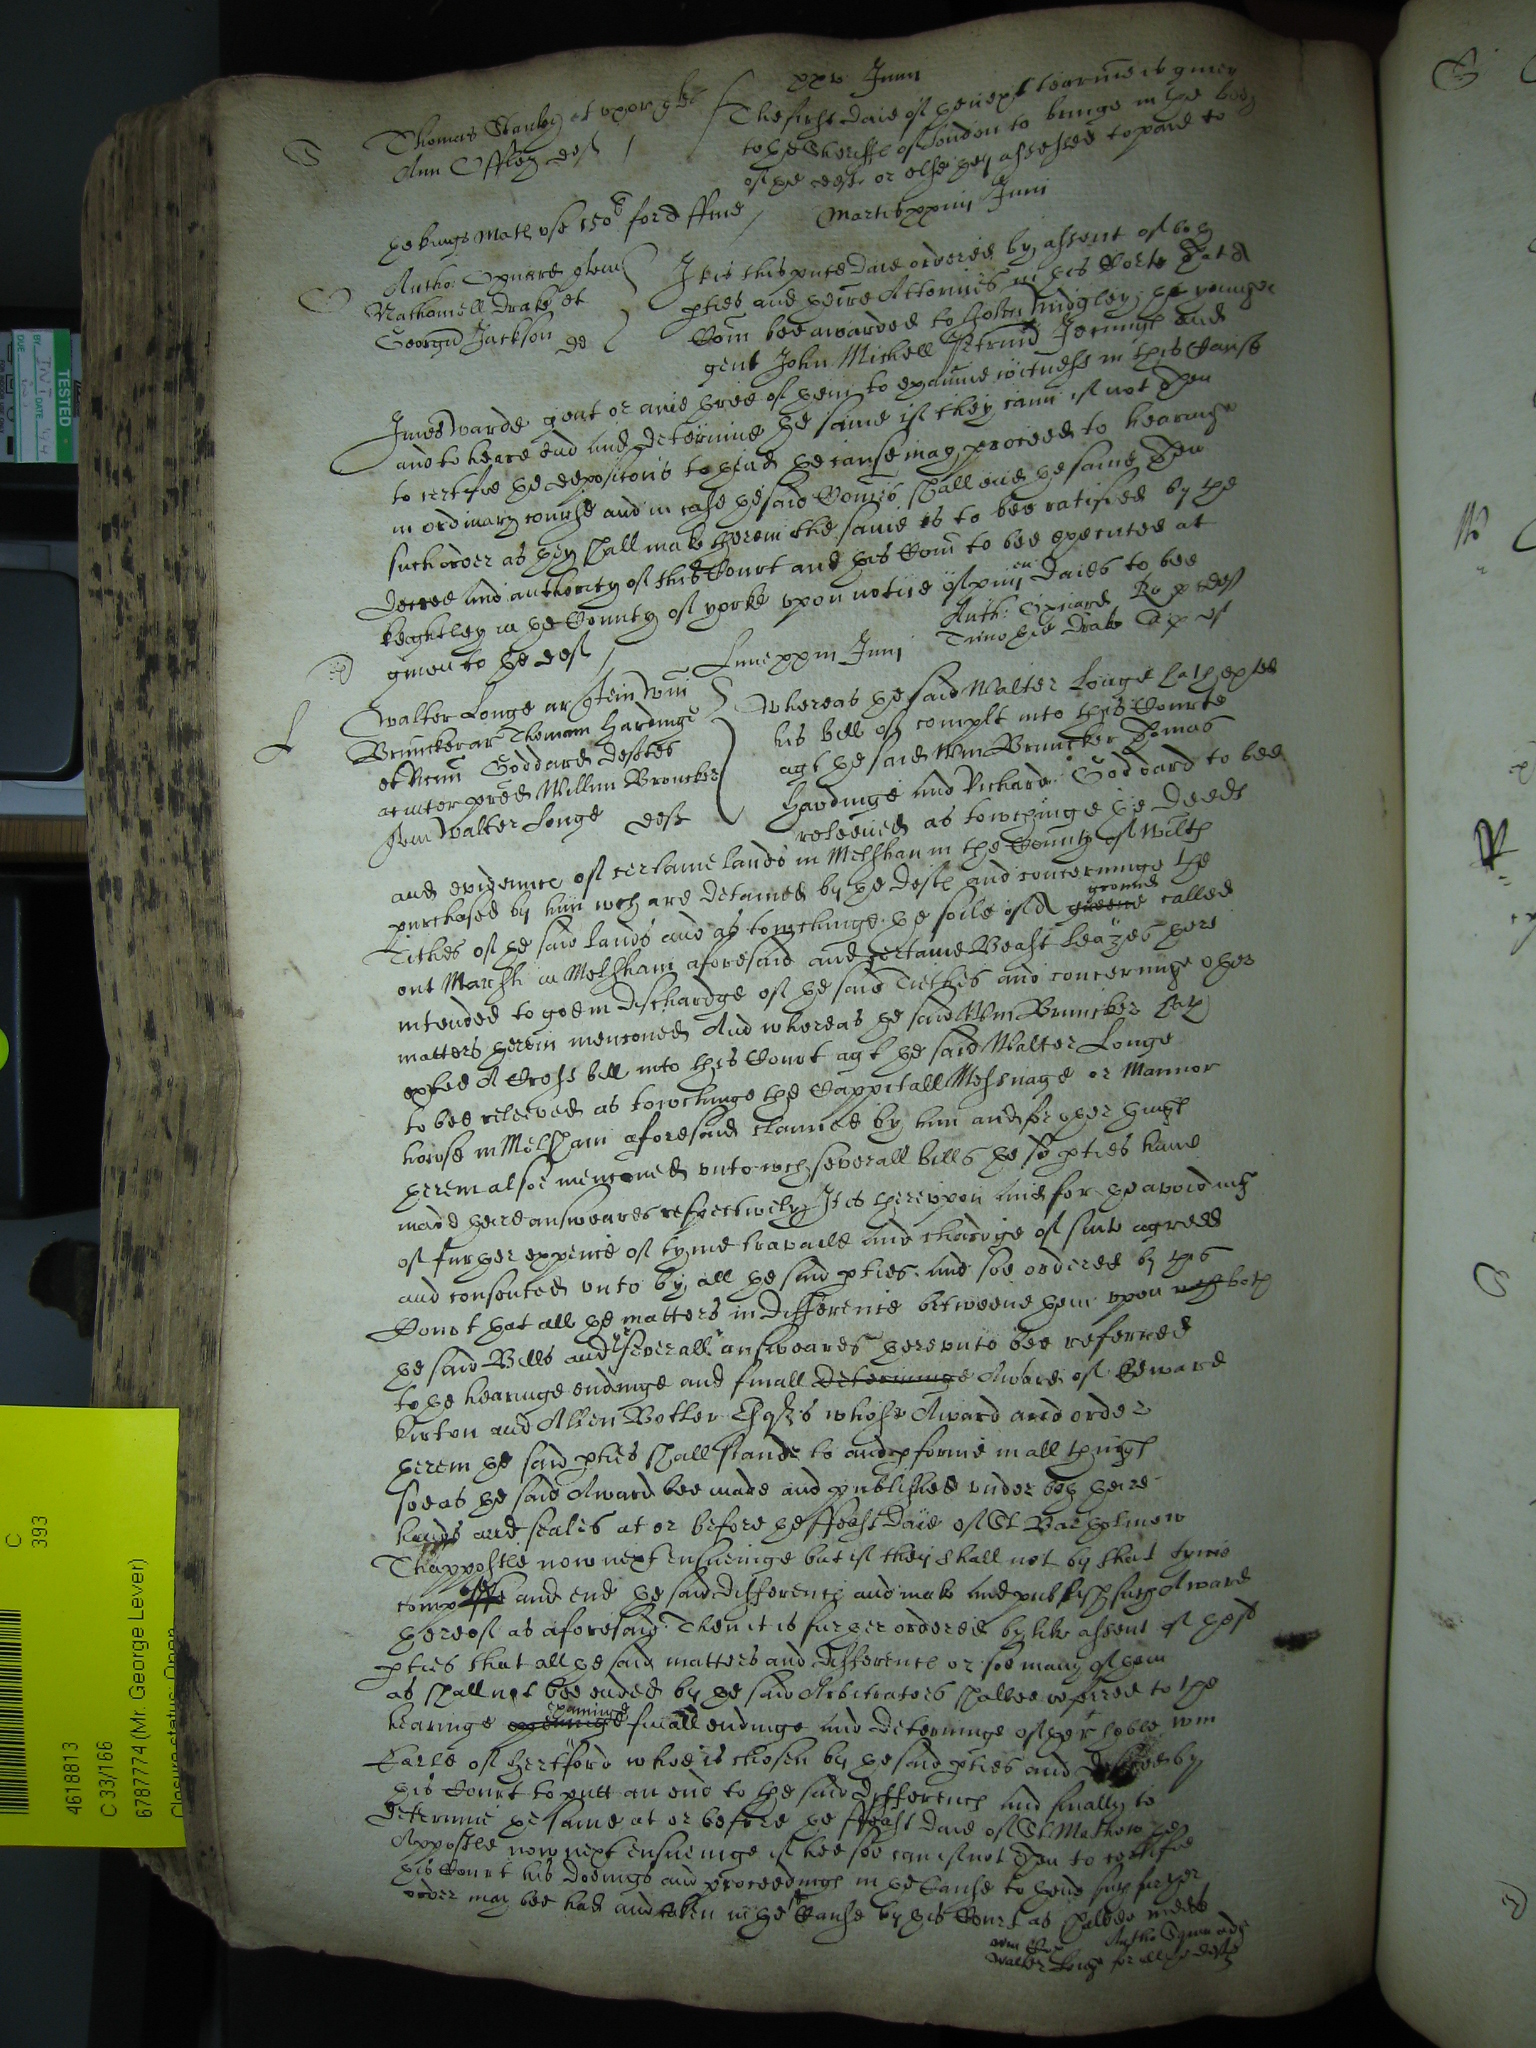 xxv Junii
S
Thomas Stanley et uxor quer
Ann Offley def
The first daie of the next tearme is given
to the Sheriffe of London to bringe in the body
of the deft or else they assessed to paie to
the kings Matie use for a ffine
Martis xxiiii Junii
Nathaniell Drake et
Georgius Jackson de
It is this pnte daie ordered by assent of both
pties and theire Attornies in this Corte that a
Com bee awarded to John Midgley the younger
gent John Michell Jeninge and
James Warde gent or anie three of them to examine witness in this Cause
and to heare end and determine the same if they cann if not then
to certifie the depositons to thend the cause may proceed to hearinge
in ordinary course and in case the said Comrs shall end the same then
such order as they shall make therein the same is to bee ratified by the
decree and authority of this Court and this Com to bee executed at
keightley in the County of yorke upon notice of xiiii en daies to bee
given to the deft
Lune xxiii Junii
L
Walter Longe ar quer Wm
Brunckerar Thomam Hardinge
et Ricum Goddard deftes
ac inter pred Willm Broncker
quer Walter Longe deft
Whereas the said Walter Longe hath exhted
his bill of complt into this Courte
agt the said Wm Bruncker Thomas
Hardinge and Richard Goddard to bee
releeved as towchinge the deeds
and evidence of certaine lands in Melsham in the County of Wilts
purchased by him wch are detained by the defts and concerninge the
Tithes of the said lands and as towchinge the soile of a ground called
ont Marsh in Melsham aforesaid and certaine Beast leazes there
intended to goe in dischardge of the said Tiethes and concerninge other
matters therein menconed And whereas the said Wm Bruncker hath
exhted A Crosse bill into this Court agt the said Walter Longe
to bee releeved as towchinge the Cappitall Messuage or Mannor
howse in Melsham aforesaid claimed by him and for other things
therein alsoe menconed unto wch severall bills the sd pties have
made theire answeares respectively It is thereupon and for the avoiding
of further expence of tyme travaile and chardge of suite agreed
and consented unto by all the said pties and soe ordered by this
Court that all the matters in difference betweene them upon wch both
the said Bills and the severall answeares thereunto bee referred
to the hearinge endinge and finall determinge Award of Edward
kirton and Allen Esqrs whose Award and order
therein the said pties shall stand to and pforme in all things
soe as the said Award bee made and published under both theire
hands and seales at or before the ffeast daie of St Bartholmew
Thappostle now next ensueinge but if they shall not by that tyme
compose and end the said difference and make and publish such Award
thereof as aforesaid Then it is further ordered by like assent of the sd
pties that all the said matters and difference or soe many of them
as shall not bee ended by the said Arbitrators shalbee referred to the
hearinge examininge finall endinge and determinge of the r hoble Wm
Earle of hertford whoe is chosen by the said pties and desired by
this Court to putt an end to the said difference and finally to
determine the same at or before the ffeast daie of St Mathew the
Appostle now next ensueinge if hee soe can if not then to certifie
this Court his doeings and proceedings in the Cause to thend such further
order may bee had and taken in the Cause by this Court as shalbee meete
Walter Longe for all the defts
TESTED
DATE
DUE
C
393
4618813
C 33/166
6787774 (Mr. George Lever)
Closure status: Open